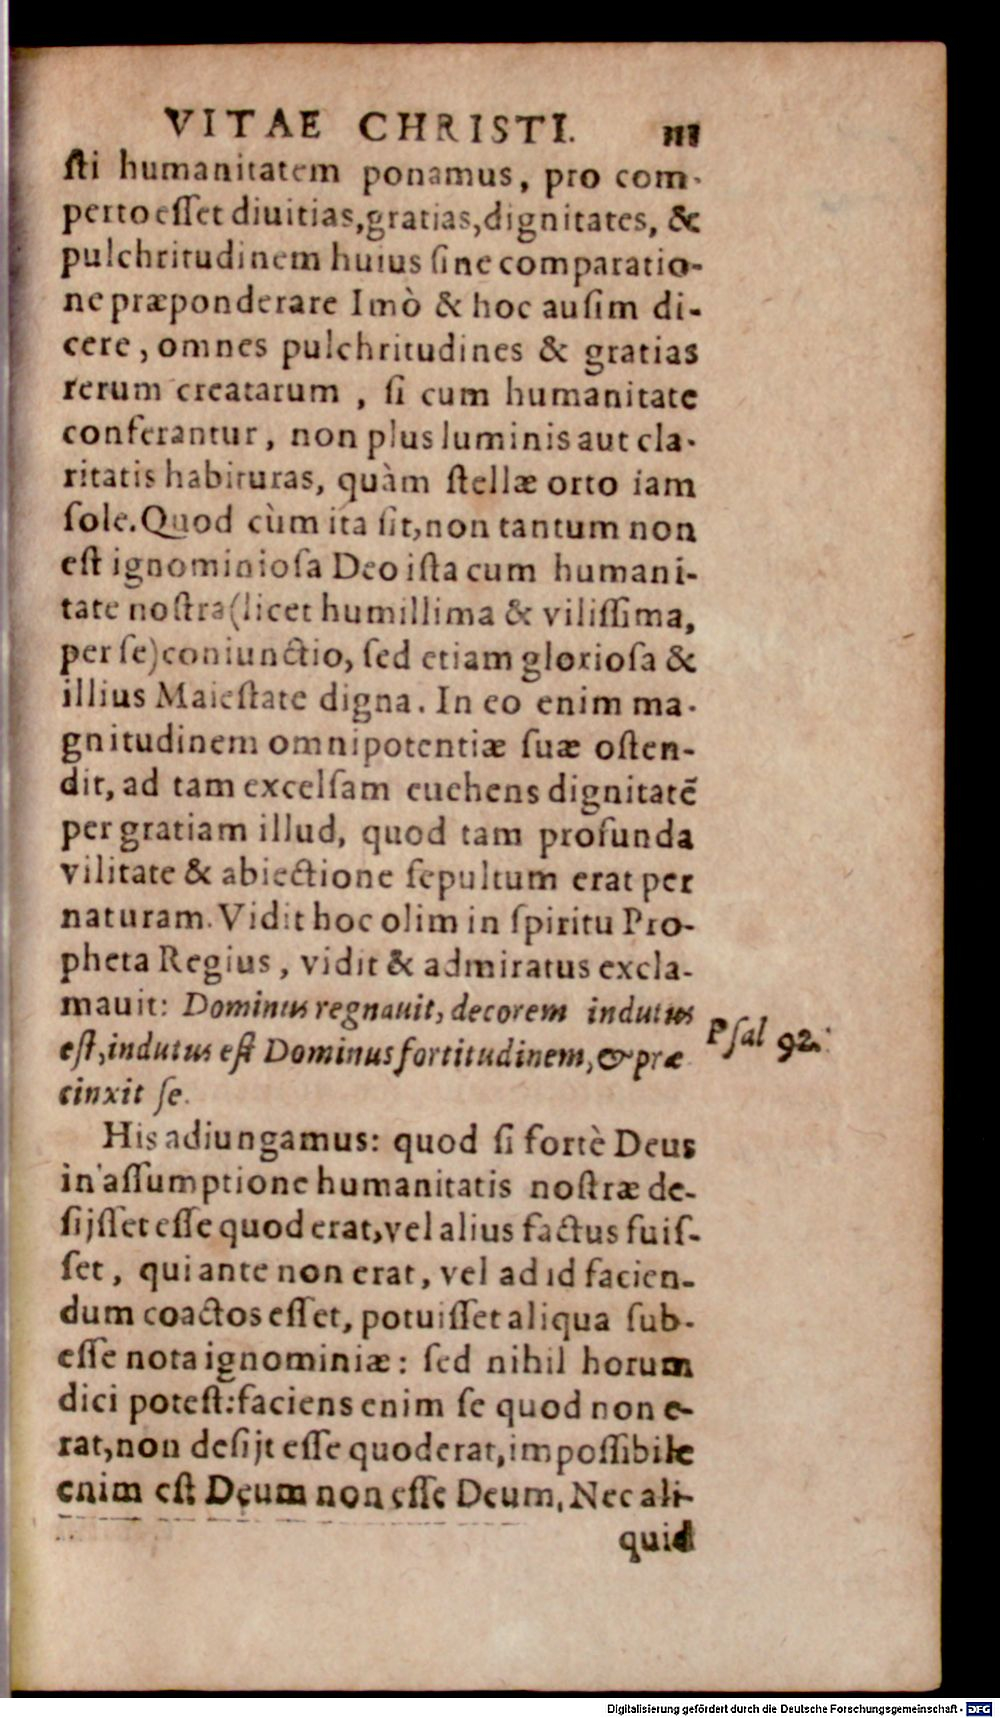 VITAE CHRISTI. 111
ſti humanitatem ponamus, pro com-
perto eſſet diuitias, gratias, dignitates, &
pulchritudinem huius ſine comparatio-
ne præponderare Imò & hoc auſim di-
cere, omnes pulchritudines & gratias
rerum creatarum, ſi cum humanitate
conferantur, non plus luminis aut cla-
ritatis habituras, quàm ſtellæ orto iam
ſole. Quod cùm ita ſit, non tantum non
eſt ignominioſa Deo iſta cum humani-
tate noſtra (licet humillima & viliſſima,
per ſe) coniunctio, ſed etiam glorioſa &
illius Maieſtate digna. In eo enim ma-
gnitudinem omnipotentiæ ſuæ oſten-
dit, ad tam excelſam euehens dignitatē
per gratiam illud, quod tam profunda
vilitate & abiectione ſepultum erat per
naturam. Vidit hoc olim in ſpiritu Pro-
pheta Regius, vidit & admiratus excla-
mauit: Dominus regnauit, decorem indutus
eſt, indutus eſt Dominus fortitudinem, & præ
cinxit ſe.
Pſal 92.
His adiungamus: quod ſi fortè Deus
in aſſumptione humanitatis noſtræ de-
ſijſſet eſſe quod erat, vel alius factus fuiſ-
ſet, qui ante non erat, vel ad id facien-
dum coactos eſſet, potuiſſet aliqua ſub-
eſſe nota ignominiæ: ſed nihil horum
dici poteſt: faciens enim ſe quod non e-
rat, non deſijt eſſe quod erat, impoſſibile
enim eſt Deum non eſſe Deum, Nec ali-
quid
Digitalisierung gefördert durch die Deutsche Forschungsgemeinschaft - DFG